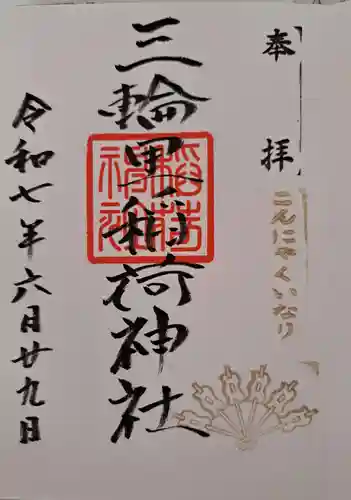 奉拝
こんにゃくいなり
三輪里稲荷神社
令和七年六月廿九日